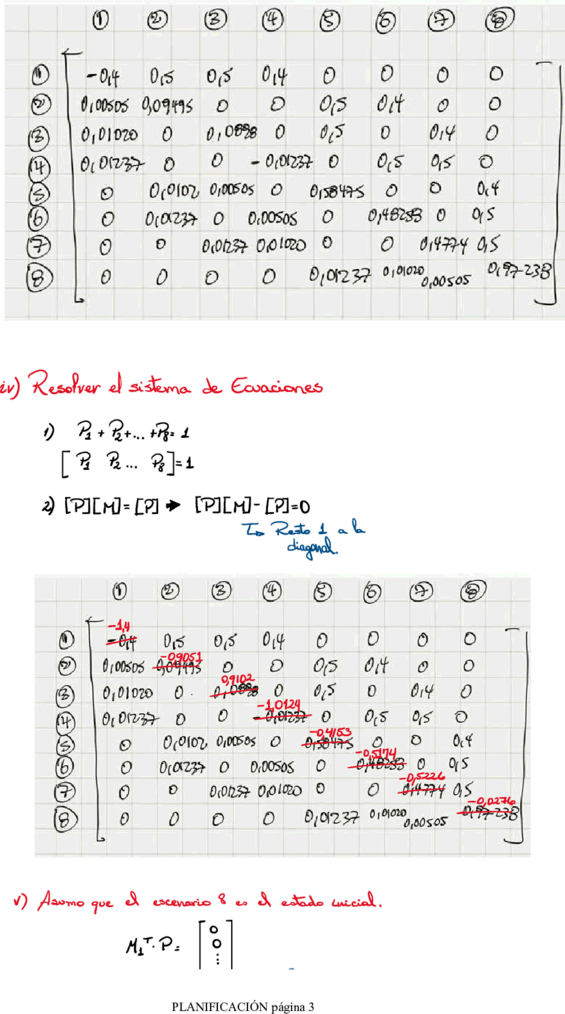 ① ② ③ ④ ⑤ ⑥ ⑦ ⑧
① -0,4 0,5 0,5 0,4 0 0 0 0
② 0,00505 0,09495 0 0 0,5 0,4 0 0
③ 0,01020 0 0,0898 0 0,5 0 0,4 0
④ 0,01237 0 0 -0,01237 0 0,5 0,5 0
⑤ 0 0,0102 0,00505 0 0,58475 0 0 0,4
⑥ 0 0,01237 0 0,00505 0 0,48258 0 0,5
⑦ 0 0 0,01237 0,01020 0 0 0,4774 0,5
⑧ 0 0 0 0 0,01237 0,01020 0,00505 0,97238
iv) Resolver el sistema de Ecuaciones
1) P1 + P2 + ... + P8 = 1
[P1 P2 ... P8] = 1
2) [P][M] = [P] → [P][M] - [P] = 0
↳ Resto 1 a la
diagonal.
① ② ③ ④ ⑤ ⑥ ⑦ ⑧
-1,4
① -0,4 0,5 0,5 0,4 0 0 0 0
-0,9051
② 0,00505 0,09495 0 0 0,5 0,4 0 0
0,9102
③ 0,01020 0 0,0898 0 0,5 0 0,4 0
-1,0124
④ 0,01237 0 0 -0,01237 0 0,5 0,5 0
-0,4153
⑤ 0 0,0102 0,00505 0 0,58475 0 0 0,4
-0,5174
⑥ 0 0,01237 0 0,00505 0 0,48258 0 0,5
-0,5226
⑦ 0 0 0,01237 0,01020 0 0 0,4774 0,5
-0,0276
⑧ 0 0 0 0 0,01237 0,01020 0,00505 0,97238
v) Asumo que el escenario 8 es el estado inicial.
M1ᵀ · P = [0
0
⋮]
PLANIFICACIÓN página 3